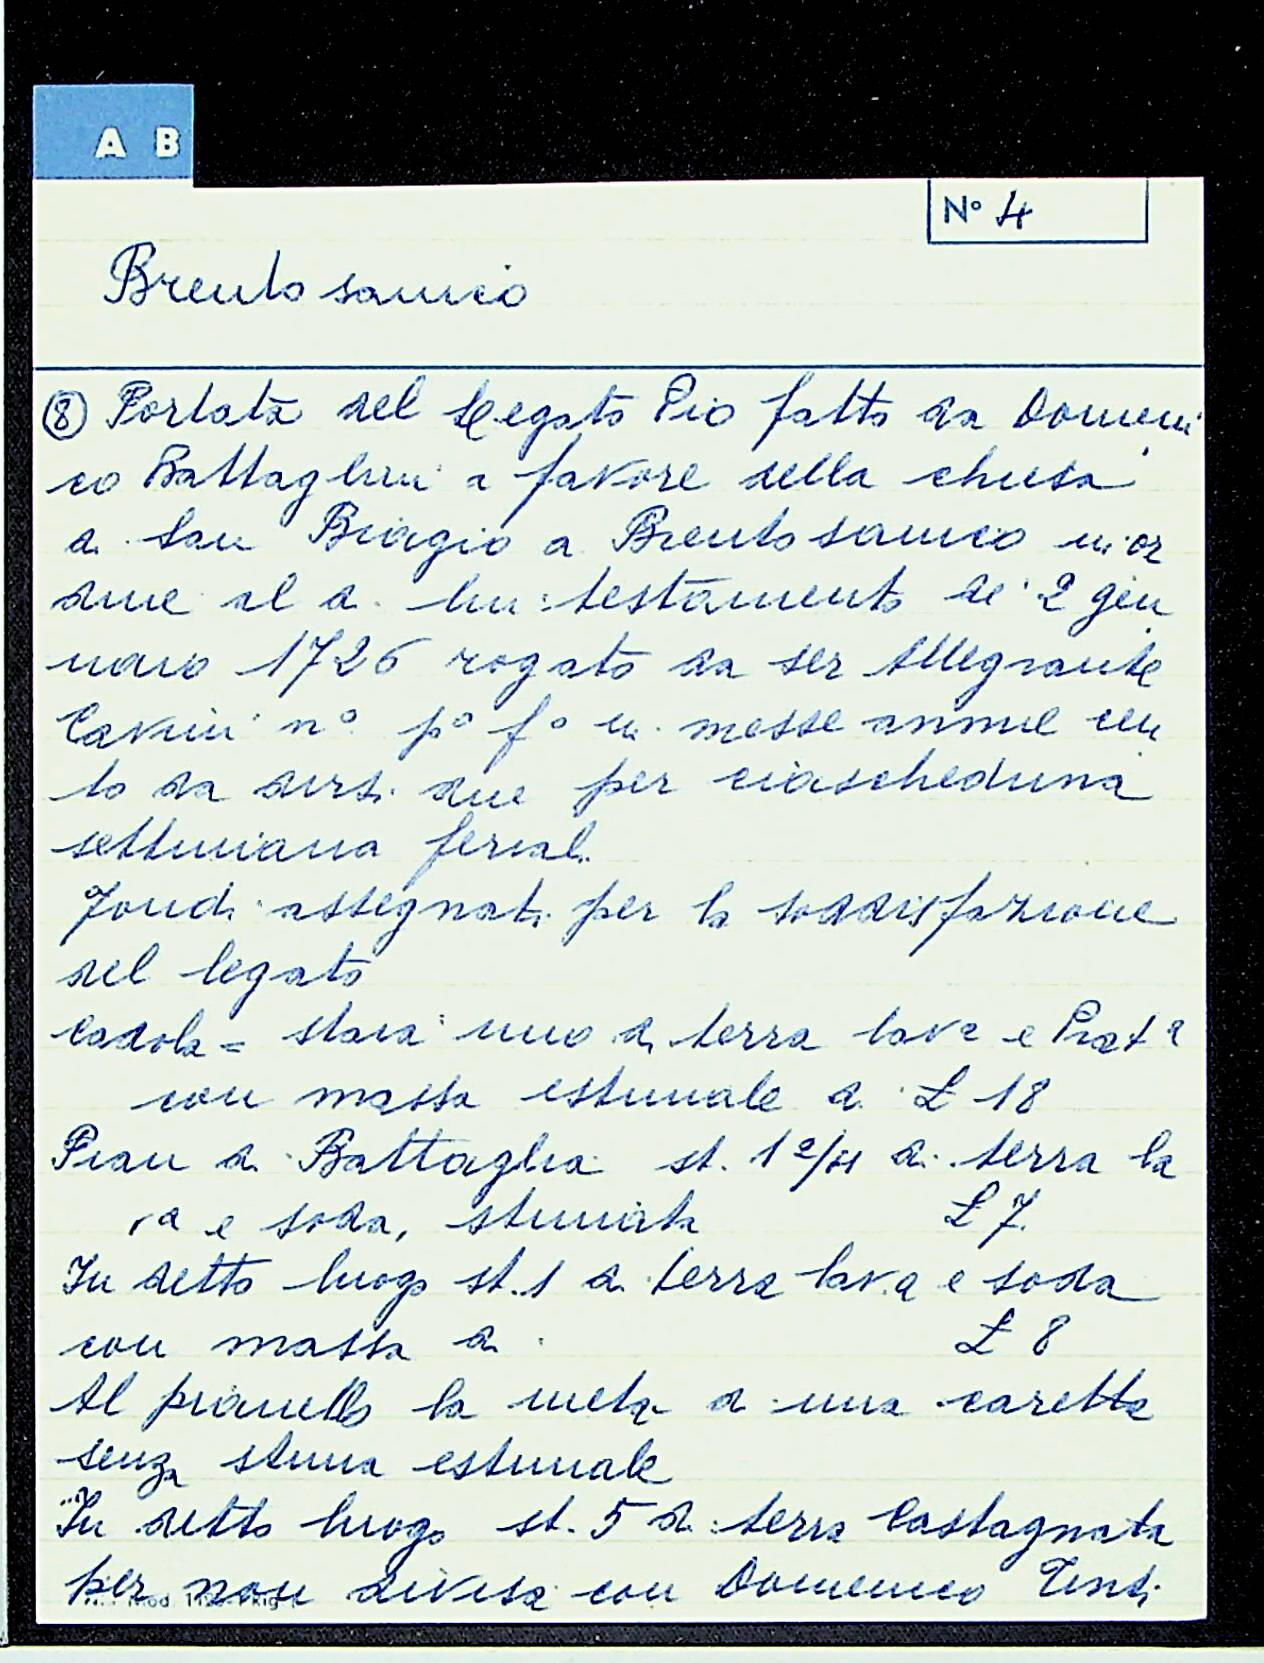 A B
N° 4
Brento sanico
⑧ Portata del Legato Pio fatto da Domeni
co Battaglini a favore della chiesa
di San Biagio a Brento sanico in or
dine al di lui testamento de 2 gen
naio 1726 rogato da ser Allegrante
Cavini n° p° f° in messe annue cen
to da dirsi due per ciascheduna
settimana ferial.
Fondi assegnati per la soddisfazione
del legato
Cadola = staia uno di terra lavª e Pratª
con massa estimale di £ 18
Pian di Battaglia st. 1 2/4 di terra la
vª e soda, stimata £ 7.
In detto luogo st. 1 di terra lav.a e soda
con massa di £ 8
Al pianello la metà di una caretta
senza stima estimale
In detto luogo st. 5 di terra Castagnata
per non divisa con Domenico